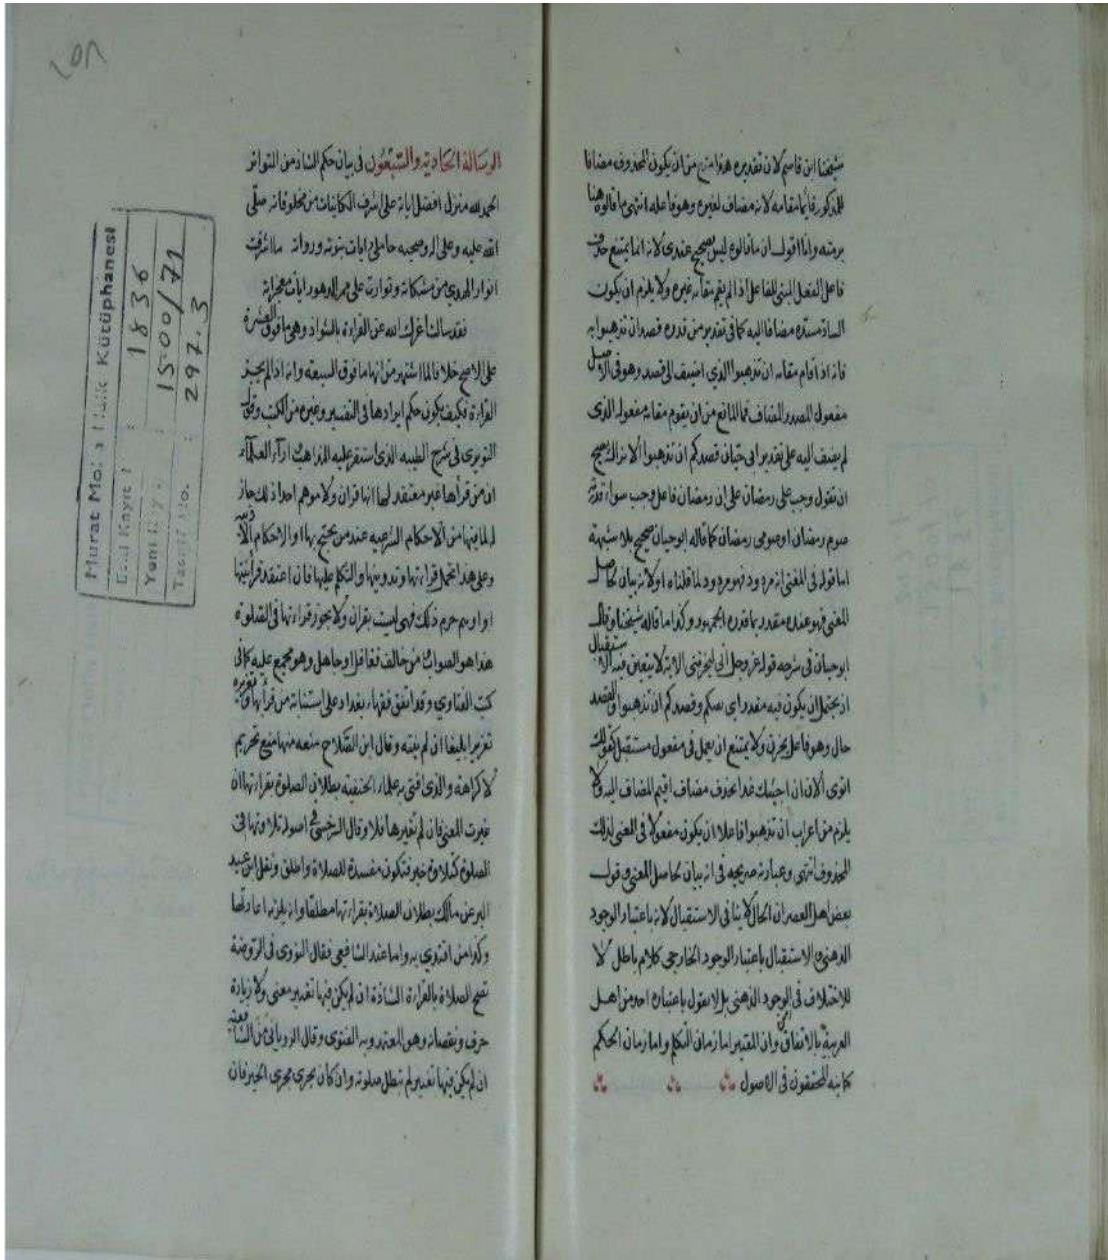 شيخنا ابن قاسم لان تقديره هذا منع من ان يكون المحذوف مضافا
للمذكور قائما مقامه لانه مضاف لغيره وهو فاعله انتهى ما قالوه هنا
برمته وانا اقول ان ما قالوه ليس بصحيح عندى لانه انما يمتنع حذف
فاعل الفعل المبنى للفاعل اذا لم يقم مقامه غيره ولا يلزم ان يكون
الساد مسده مضافا اليه كما فى تقدير من قدره قصد ان تذهبوا به
فانه اذا قام مقامه ان تذهبوا الذي اضيف الى قصد وهو فى الاصل
مفعول المصدر المضاف فما المانع من ان يقوم مقامه مفعوله الذى
لم يضف اليه على تقدير ابى حيان قصدكم ان تذهبوا الا تراك يصح
ان تقول وجب على رمضان على ان رمضان فاعل وجب سواء قدرته
صوم رمضان او صومى رمضان فما قاله ابو حيان صحيح بلا شبهة
اما قوله فى المغنى انه مردود فهو مردود لما قلناه او لانه بيان لحاصل
المعنى فهو عنده مقدر بما قدره الجمهور وكذا ما قاله شيخنا وقال
ابو حيان فى شرحه قوله عز وجل انى ليحزننى الاية لا يتعين فيه الاستقبال
اذ يحتمل ان يكون فيه مقدر اى نيتكم وقصدكم ان تذهبوا والقصد
حال وهو فاعل يحزن ولا يمتنع ان يعمل فى مفعول مستقبل كقولك
انوى الان ان اجيئك غدا بحذف مضاف اقيم المضاف اليه ولا
يلزم من اعراب ان تذهبوا فاعلا ان يكون مفعولا فى المعنى لذلك
المحذوف انتهى وعبارته صريحة فى انه بيان لحاصل المعنى وقول
بعض اهل العصر ان الحال لا ينافى الاستقبال لانه باعتبار الوجود
الذهنى والاستقبال باعتبار الوجود الخارجى كلام باطل لا
للاختلاف فى الوجود الذهنى بل لا يقول باعتباره احد من اهل
العربية بالاتفاق وان المعتبر اما زمان التكلم واما زمان الحكم
كما بينه المحققون فى الاصول
٨٥٨
الرسالة الحادية والسبعون فى بيان حكم الشاذ من المتواتر
الحمد لله منزل افضل اياته على اشرف الكائنات من مخلوقاته صلى
الله عليه وعلى اله وصحبه حاملى ايات نبوته ورواته ما اشرقت
انوار الهدي من مشكاته وتوارت على ممر الدهور ايات معجزاته
فقد سالت اعزك الله عن القراءة بالشواذ وهى ما فوق العشرة
على الاصح خلافا لما اشتهر من انها ما فوق السبعة وانه اذا لم يجز
القراءة فكيف يكون حكم ايرادها فى التفسير وغيره من الكتب وقول
النويرى فى شرح الطيبه الذى استقر عليه المذاهب اراء العلماء
ان من قرأ بها غير معتقد لها انها قران ولا موهم احدا ذلك جاز
له لما فيها من الاحكام الشرعيه عند من يحتج بها او الاحكام الادبيه
وعلى هذا يحمل قراءتها وتدوينها والتكلم عليها فان اعتقد قرآنيتها
او اوهم حرم ذلك فهى ليست بقران ولا يجوز قراءتها فى الصلوة
هذا هو الصواب من خالف فغافل او جاهل وهو مجمع عليه كما فى
كتب الفتاوي وقد اتفق فقهاء بغداد على استتابة من قرأ بها وتعزيره
تعزيرا بليغا ان لم ينته وقال ابن الصلاح منعه منها منع تحريم
لا كراهة والذى افتى به علماء الحنفيه بطلان الصلوة بقراءتها ان
غيرت المعنى فان لم تغيرها فلا وقال السرخسى فى اصوله تلاوتها فى
الصلوة كتلاوة خبر فتكون مفسدة للصلاة واطلق ونقل ابن عبد
البر عن مالك بطلان الصلاة بقراءتها مطلقا وانه يلزمه اعادتها
وكذا من اقتدي به واما عند الشافعي فقال النووى فى الروضة
تصح الصلاة بالقراءة الشاذة ان لم يكن فيها تغيير معنى ولا زيادة
حرف ونقصانه وهو المعتمد وبه الفتوى وقال الرويانى من الشافعيه
ان لم يكن فيها تغيير لم تبطل صلوته وان كان يجرى مجرى الخبر فان
Murat Molla Halk Kütüphanesi
Eski Kayıt : 1836
Yeni Kayıt : 1500/71
Tasnif No. : 297.3